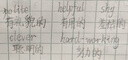 polite helpful shy
有礼貌的 有用的 害羞的
clever hard-working
聪明的 努力的